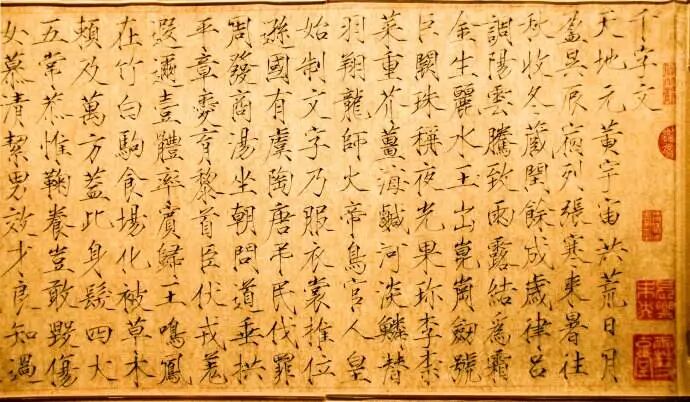 千字文
天地元黄宇宙洪荒日月
盈昃辰宿列張寒来暑往
秋收冬藏閏餘成歲律呂
調陽雲騰致雨露結爲霜
金生麗水玉出崑崗劒號
巨闕珠稱夜光果珎李柰
菜重芥薑海鹹河淡鱗潛
羽翔龍師火帝鳥官人皇
始制文字乃服衣裳推位
遜國有虞陶唐弔民伐罪
周發商湯坐朝問道垂拱
平章愛育黎首臣伏戎羌
遐邇壹體率賓歸王鳴鳳
在竹白駒食場化被草木
賴及萬方蓋此身髮四大
五常恭惟鞠養豈敢毀傷
女慕清絜男效才良知過